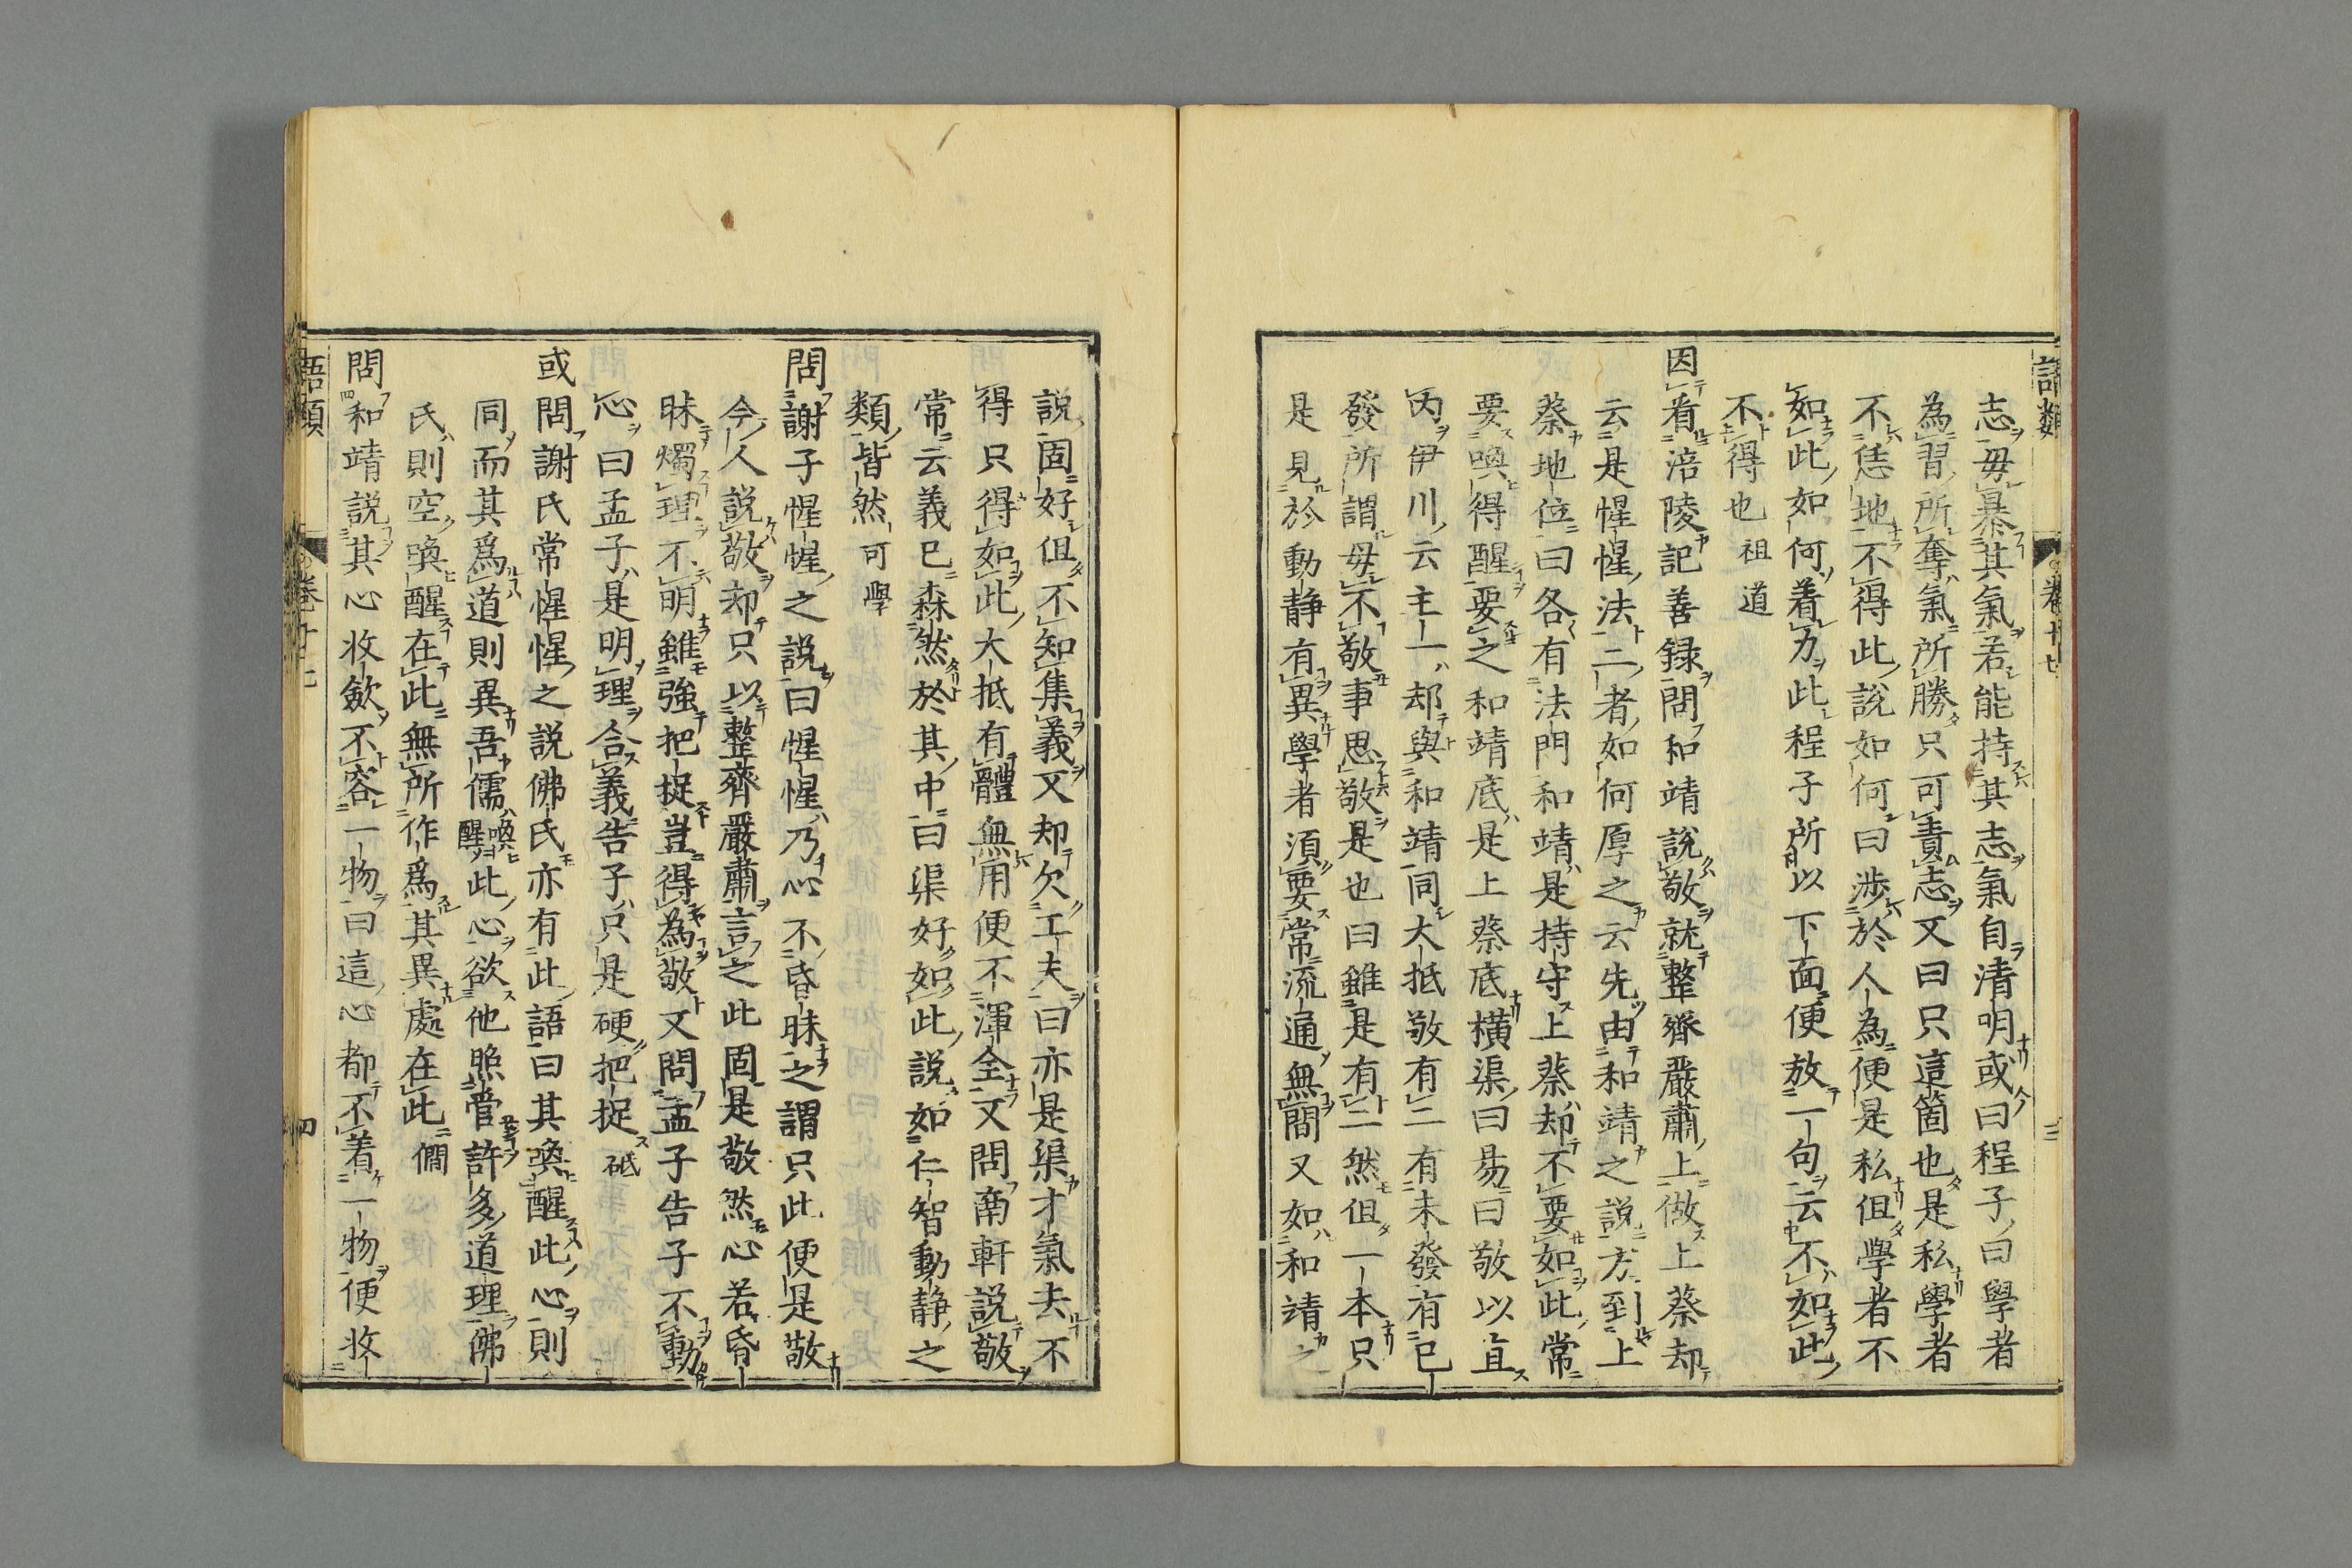 語類 卷十七 三
志毋暴其氣若能持其志氣自清明或曰程子曰學者
為習所奪氣所勝只可責志又曰只這箇也是私學者
不恁地不得此說如何曰涉於人為便是私但學者不
如此如何着力此程子所以下面便放一句云不如此
不得也祖道
因看涪陵記善録問和靖說敬就整齊嚴肅上做上蔡却
云是惺惺法二者如何厚之云先由和靖之說方到上
蔡地位曰各有法門和靖是持守上蔡却不要如此常
要喚得醒要之和靖底是上蔡底橫渠曰易曰敬以直
內伊川云主一却與和靖同大抵敬有二有未發有已
發所謂毋不敬事思敬是也曰雖是有二然但一本只
是見於動静有異學者須要常流通無間又如和靖之
説固好但不知集義又却欠工夫曰亦是渠才氣去不
得只得如此大抵有體無用便不渾全又問南軒説敬
常云義已森然於其中曰渠好如此説如仁智動静之
類皆然可學
問謝子惺惺之説曰惺惺乃心不昏昧之謂只此便是敬
今人説敬却只以整齊嚴肅言之此固是敬然心若昏
昧燭理不明雖強把捉豈得為敬又問孟子告子不動
心曰孟子是明理合義告子只是硬把捉砥
或問謝氏常惺惺之説佛氏亦有此語曰其喚醒此心則
同而其爲道則異吾儒喚醒此心欲他照管許多道理佛
氏則空喚醒在此無所作爲其異處在此僩
問和靖説其心收斂不容一物曰這心都不着一物便收
語類 卷十七 四